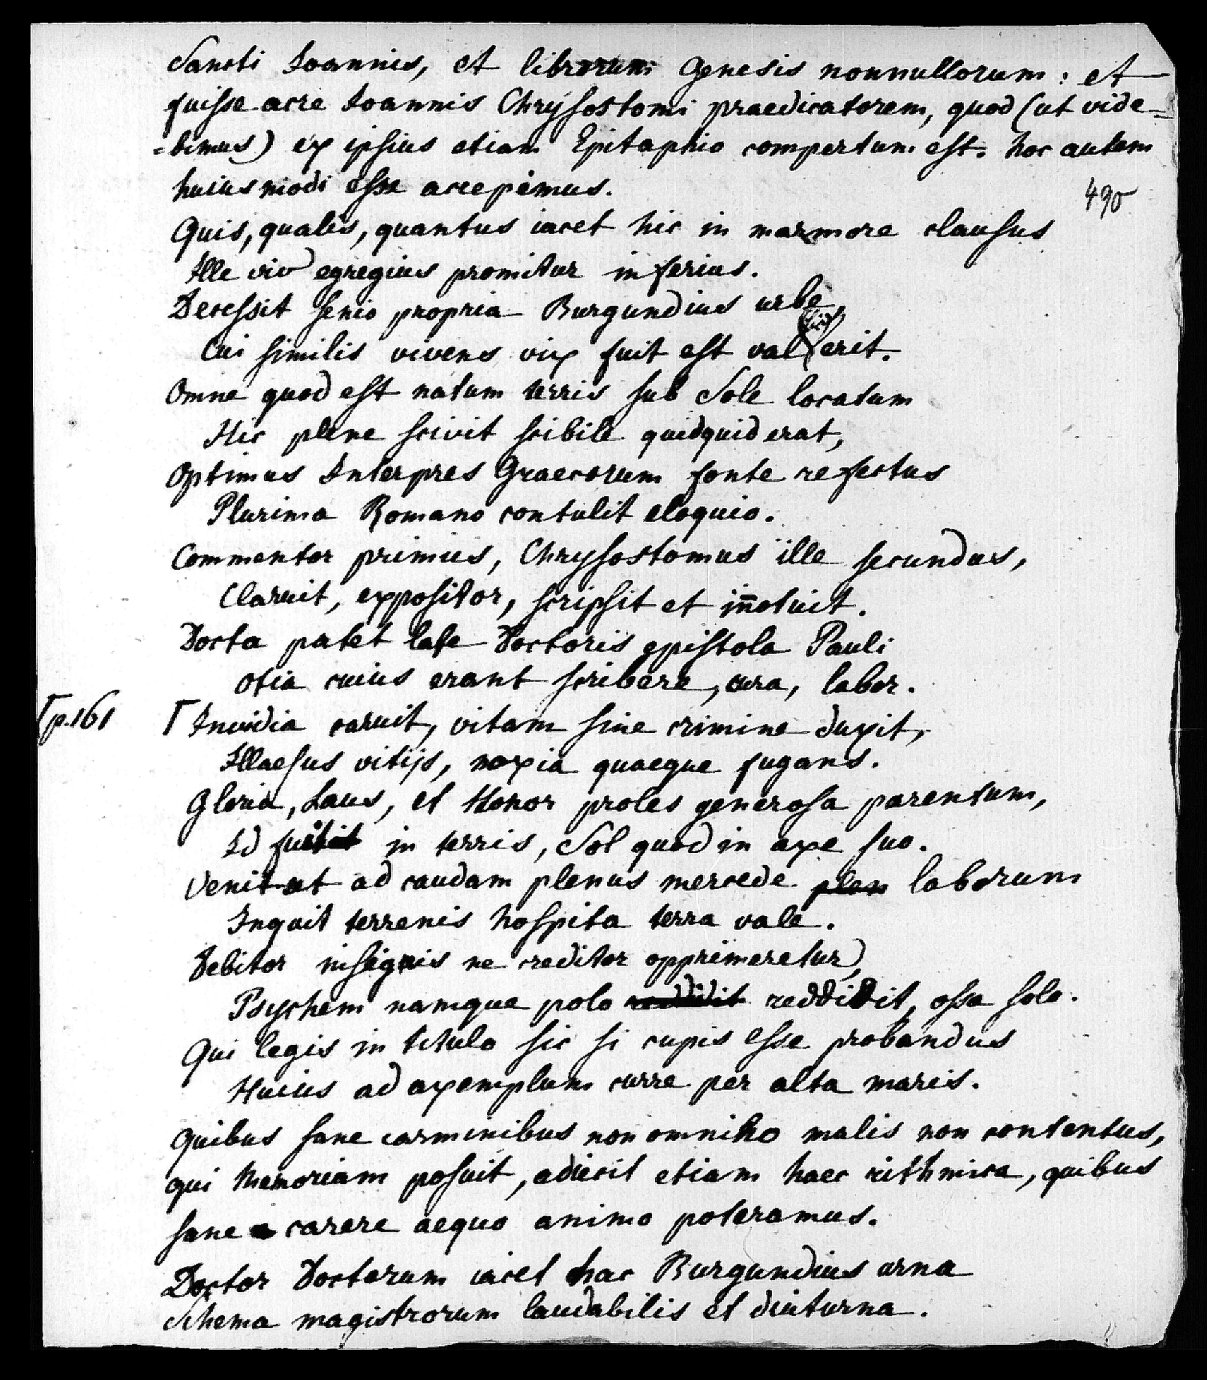 Sancti Ioannis, et librorum Genesis nonnullorum: et
fuisse acre Ioannis Chrysostomi praedicatorem, quod (ut vide-
=bimus) ex ipsius etiam Epitaphio compertum est. hoc autem
huiusmodi esse accepimus.
490
Quis, qualis, quantus iacet hic in marmore clausus
Ille vir egregius promitur inferius.
Decessit senio propria Burgundius urbe,
Cui similis vivens vix fuit est val erit.
Omne quod est natum terris sub Sole locatum
Hic plene scivit scibile quidquid erat,
Optimus Interpres Graecorum fonte refectus
Plurima Romano contulit eloquio.
Commentor primus, Chrysostomus ille secundus,
Claruit, expositor, scripsit et iñotuit.
Docta patet late Doctoris epistola Pauli
otia cuius erant scribere, cura, labor.
[p. 161
[Invidia caruit, vitam sine crimine duxit,
Illaesus vitijs, noxia quaeque fugans.
Gloria, Laus, et Honor proles generosa parentum,
Id fuit in terris, Sol quod in axe suo.
Venit ut ad caudam plenus mercede plen laborum
Inquit terrenis hospita terra vale.
Debitor insignis ne creditor opprimeretur,
Psychem namque polo reddidit reddidit, ossa solo.
Qui legis in titulo sic si cupis esse probandus
Huius ad axemplum curre per alta maris.
Quibus sane carminibus non omnino malis non contentus,
qui Memoriam posuit, adiecit etiam haec rithmica, quibus
sane carere aequo animo poteramus.
Doctor Doctorum iacet hac Burgundius urna
Schema magistrorum laudabilis et diuturna.